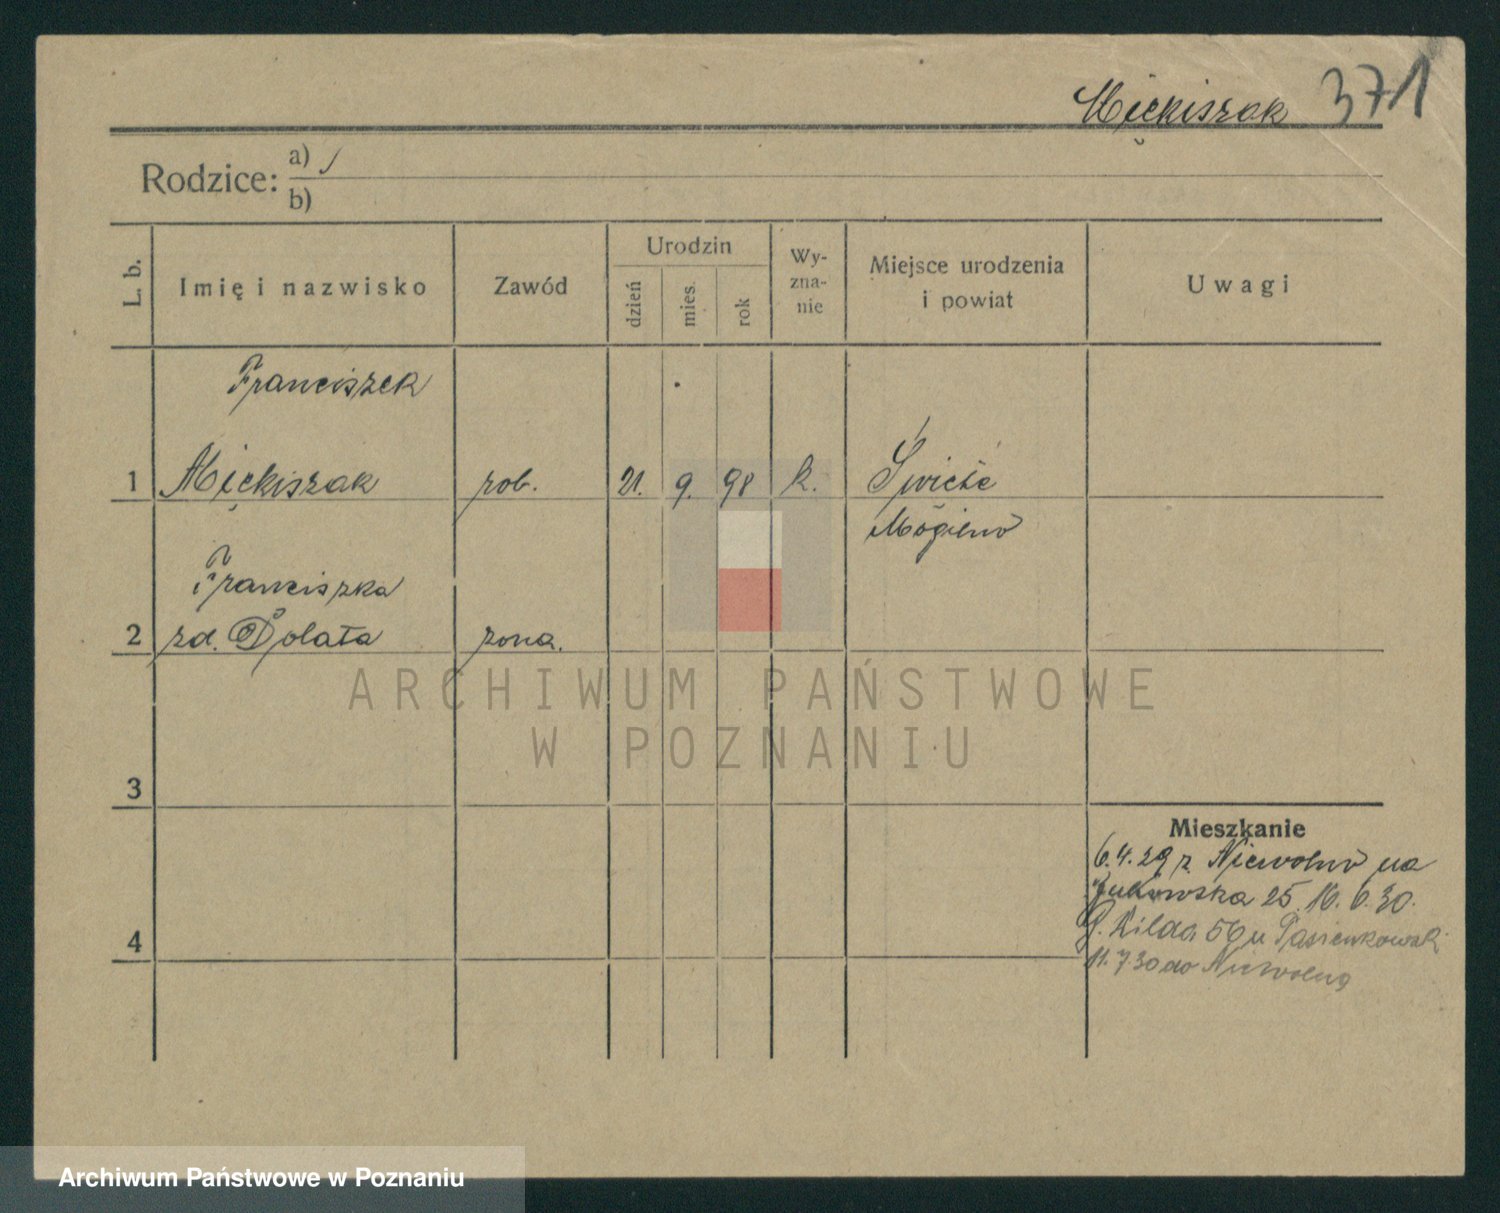 Mięckiszak 371
Rodzice: a)
b)
L. b.
Imię i nazwisko
Zawód
Urodzin
dzień
mies.
rok
Wy-
zna-
nie
Miejsce urodzenia
i powiat
Uwagi
Franciszek
1 Mięckiszak rob. 21. 9. 98 k.
Mogilno
Franciszka
2 zd. Dolata zona.
ARCHIWUM PAŃSTWOWE
W POZNANIU
3
Mieszkanie
6.4.29 z Niewolno na
25. 16. 6. 30.
4
G. Wilda 56 u
11.7.30 do Niewolna
Archiwum Państwowe w Poznaniu